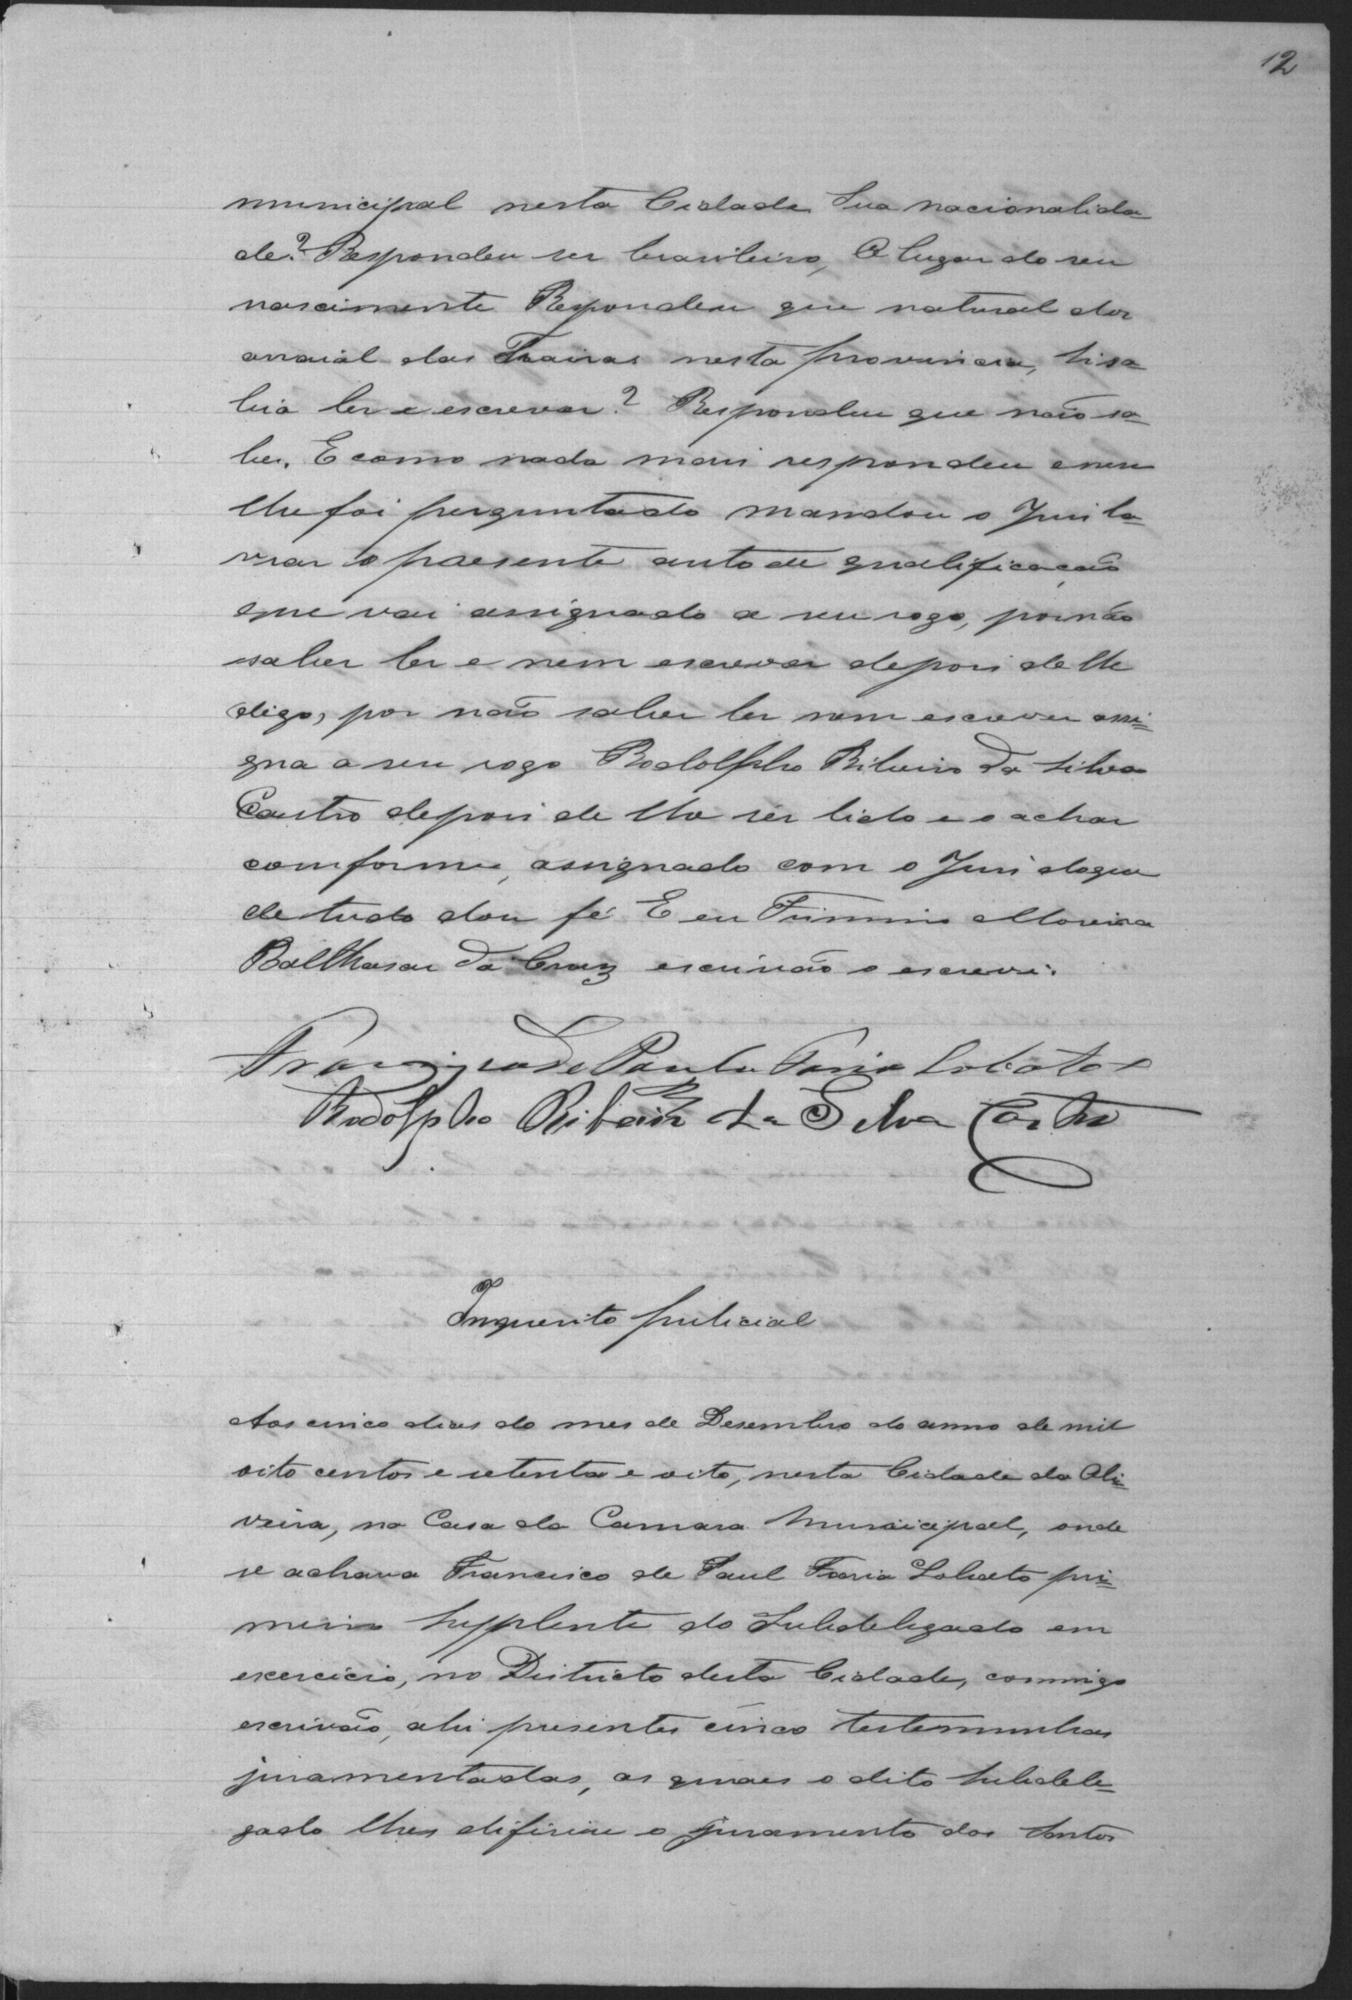 12
municipal nesta Cidade, Sua nacionalida-
de? Respondeu ser brasileiro, O lugar do seu
nascimente Respondeu que natural dos
arraial das Trairas nesta provincia, Si sa-
bia ler e escrever? Respondeu que não sa-
be. E como nada mais respondeu e nem
lhe foi perguntado mandou o Juis la-
vrar o presente auto de qualificação
que vai assignado a seu rogo, por não
saber ler e nem escrever depois de lhe
digo, por não saber ler nem escrever assi-
gna a seu rogo Rodolpho Ribeiro da Silva
Castro depois de lhe ser lido e o achar
comforme, assignado com o Juis do que
de tudo dou fé E eu Firmino Moreira
Balthasar da Cruz escrivão o escrevi.
Francisco de Paula Faria Lobato
Rodolpho Ribeiro da Silva Castro
Inquerito pulicial
Aos cinco dias do mes de Desembro do anno de mil
oito centos e setenta e oito, nesta Cidade da Oli-
veira, na Casa da Camara Municipal, onde
se achava Francisco de Paul Faria Lobato pri-
meiro Supplente do Subdelegado em
exercicio, no Districto desta Cidade, commigo
escrivão, ahi presentes cinco testemunhas
juramentadas, as quaes o dito Subdele-
gado lhes difiriu o juramento dos Santos